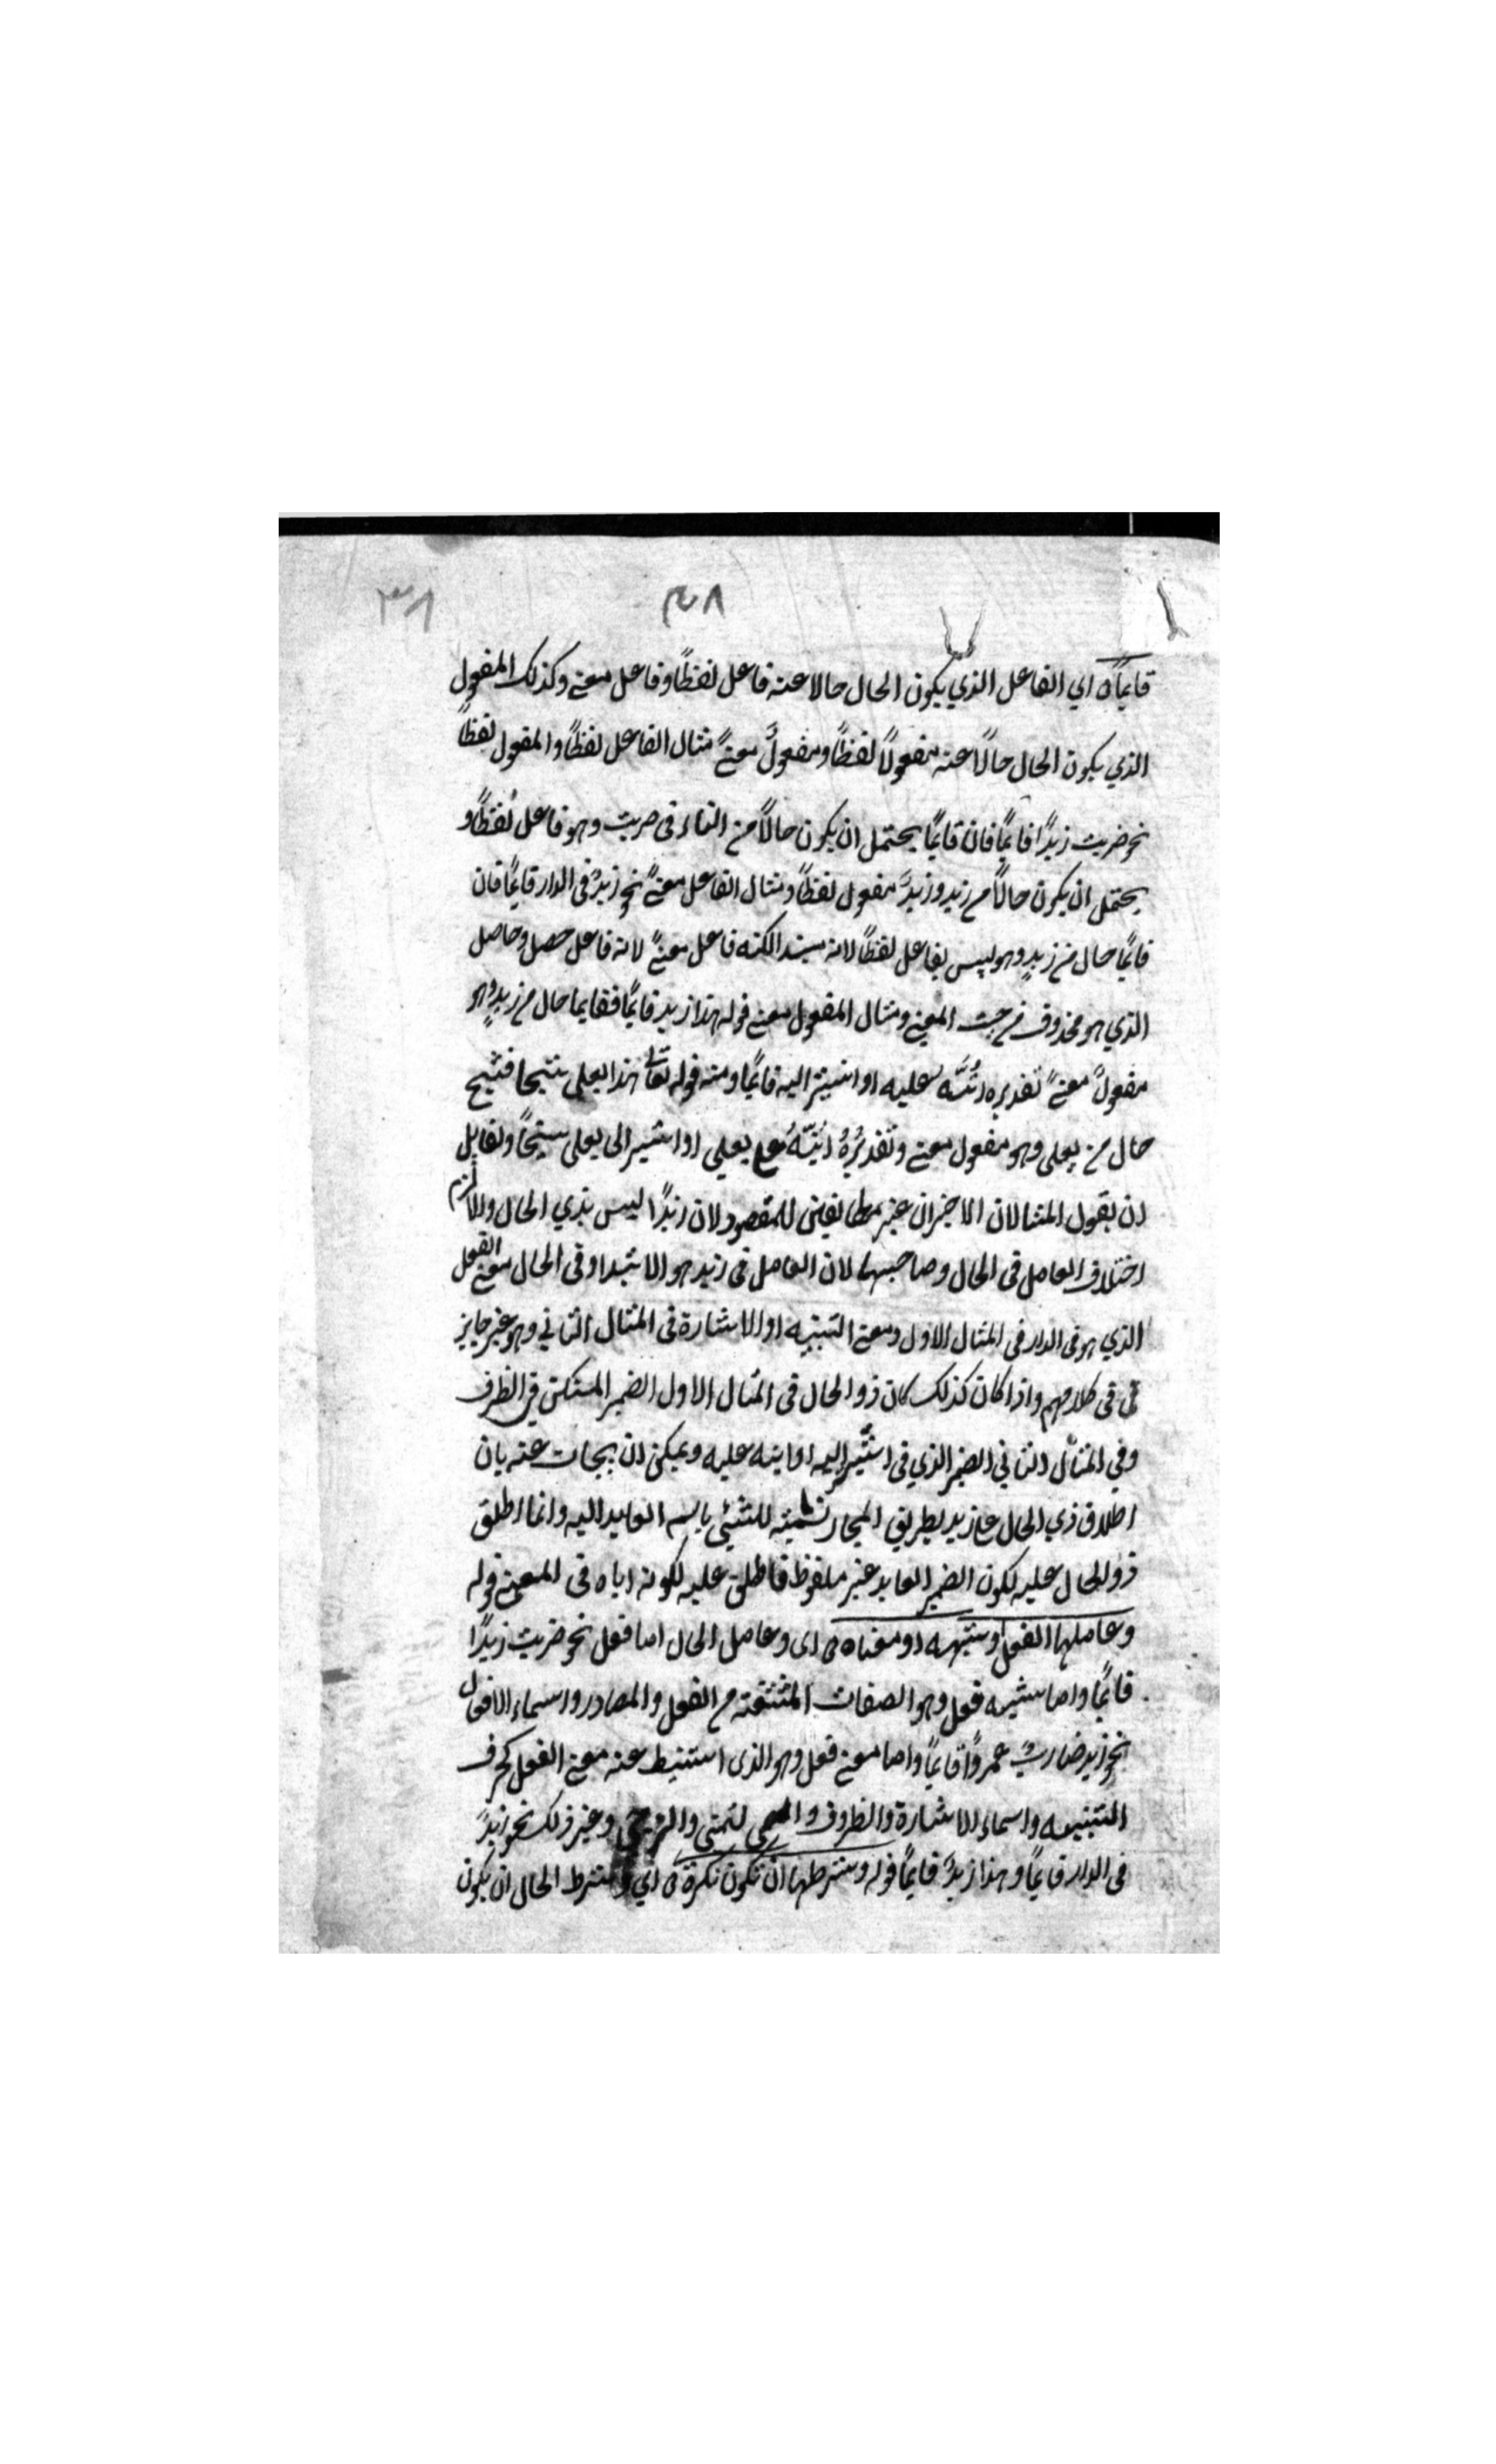 ٣٨
٣٨
قايمًا ای الفاعل الذي يكون الحال حالا عنه فاعل لفظًا وفاعل معنی وكذلك المفعول
الذي يكون الحال حالًا عنه مفعولًا لفظًا ومفعولً معنیً مثال الفاعل لفظًا والمفعول لفظًا
نحو ضربت زيدًا قايمًا فان قايمًا يحتمل ان يكون حالًا من التاء فی ضربت وهو فاعل لفظًا و
يحتمل ان يكون حالًا من زيد وزيدً مفعول لفظًا ومثال الفاعل معنیً نحو زيدٌ فی الدار قايمًا فان
قايمًا حال من زيدٍ وهو ليس بفاعل لفظًا لانه مبتدا لكنه فاعل معنیً لانه فاعل حصل وحاصل
الذي هو محذوف من حيث المعنی ومثال المفعول معنی قوله هذا زيد قايمًا فقايما حال من زيدٍ وهو
مفعولً معنیً تقديره انبّه عليه او اشير اليه قايمًا ومنه قوله تعالی هذا بعلی شيخا فشيخ
حال من بعلی وهو مفعول معنی وتقديرُهُ انبّهُ علی بعلي او اشير الی بعلی شيخًا ولقايل
ان يقول المثالان الاخيران غير مطابقين للمقصود لان زيدًا ليس بذي الحال والا لزم
اختلاف العامل فی الحال وصاحبها لان العامل فی زيد هو الابتدا وفی الحال معنی الفعل
الذي هو فی الدار فی المثال الاول ومعنی التنبيه او الاشارة فی المثال الثاني وهو غير جايز
فی فی كلامهم واذا كان كذلك كان ذو الحال فی المثال الاول الضمير المستكن فی الظرف
وفي المثال الثاني الضمير الذي فی اشير اليه او انبه عليه ويمكن ان يجاب عنه بان
اطلاق ذي الحال علی زيد بطريق المجاز تسمية للشيئی باسم العايد اليه وانما اطلق
ذو الحال عليه لكون الضمير العايد غير ملفوظ فاطلق عليه لكونه اياه فی المعنی قوله
وعاملها الفعل او شبهه او معناه ای وعامل الحال اما فعل نحو ضربت زيدًا
قايمًا واما شبيه فعل وهو الصفات المشتقة من الفعل والمصادر واسماء الافعال
نحو زيد ضاربٌ عمروًا قايمًا واما معنی فعل وهو الذی استنبط عنه معنی الفعل كحرف
التنبيه واسماء الاشارة والظروف و التمنی والترجی وغير ذلك نحو زيدً
فی الدار قايمًا وهذا زيدً قايمًا قوله وشرطها ان تكون نكرة اي وشرط الحال ان يكون